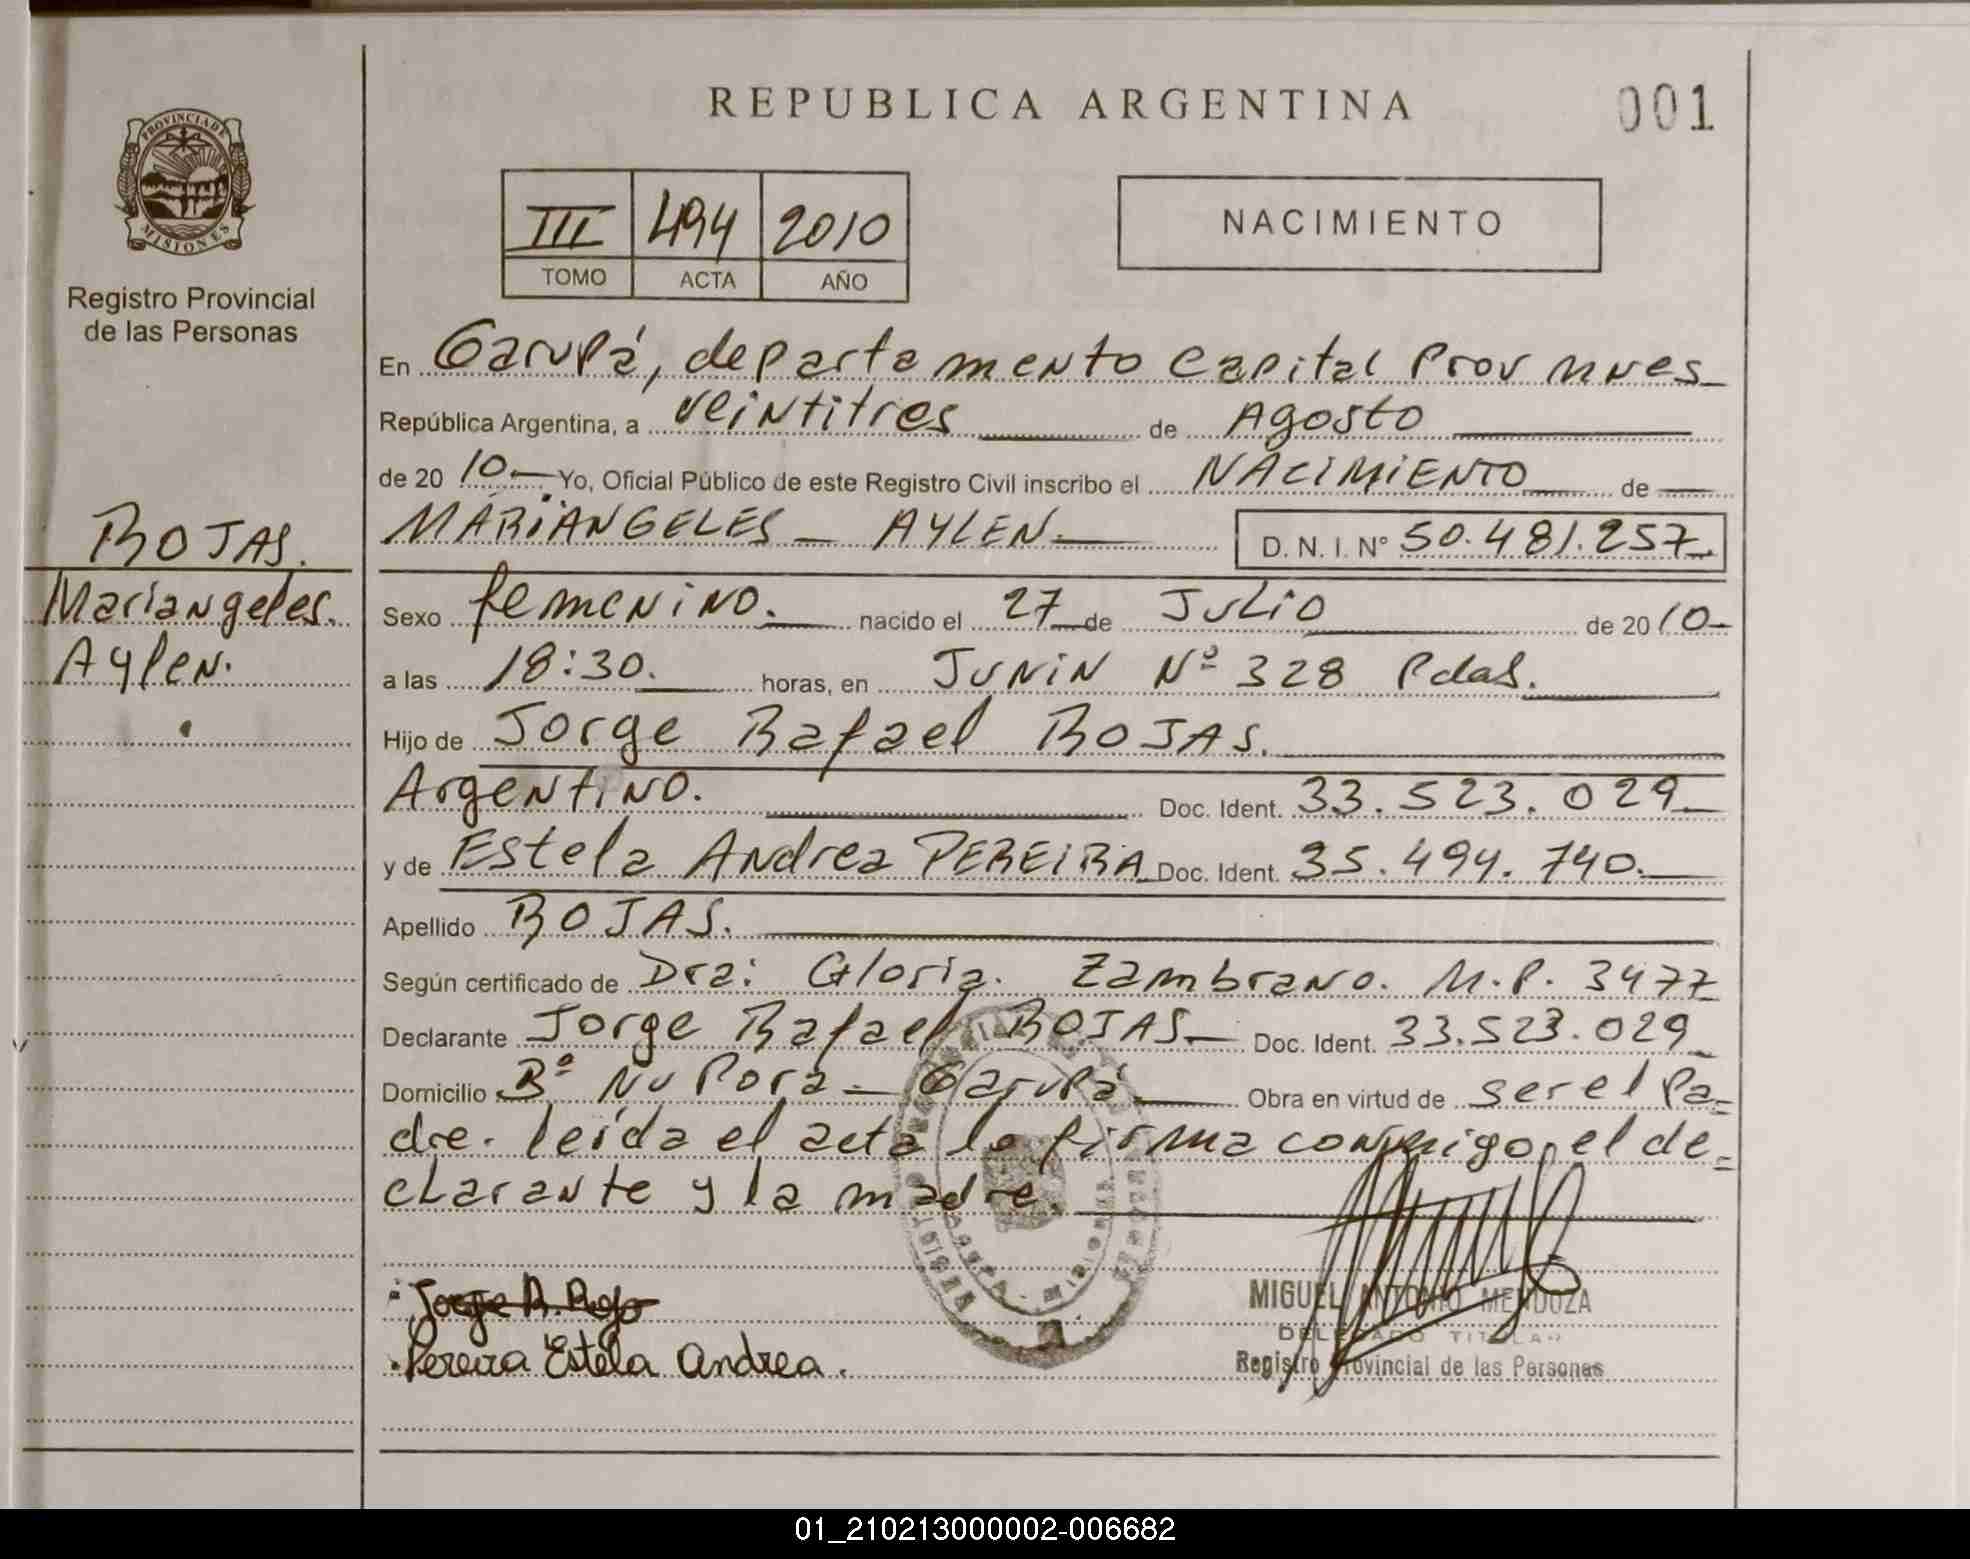 REPUBLICA ARGENTINA
001
PROVINCIA DE
MISIONES
Registro Provincial
de las Personas
III 494 2010
TOMO ACTA AÑO
NACIMIENTO
ROJAS.
Mariangeles.
Aylen.
En Garupá, departamento Capital Prov Mnes
República Argentina, a veintitres de Agosto
de 20 10.- Yo, Oficial Público de este Registro Civil inscribo el NACIMIENTO de
MARIANGELES - AYLEN.- D. N. I. N° 50.481.257.
Sexo femenino. nacido el 27 de Julio de 20 10-
a las 18:30. horas, en Junin Nº 328 Pdas.
Hijo de Jorge Rafael ROJAS.
Argentino. Doc. Ident. 33.523.029
y de Estela Andrea PEREIRA Doc. Ident. 35.494.740.
Apellido ROJAS.
Según certificado de Dra: Gloria. Zambrano. M.P. 3477
Declarante Jorge Rafael ROJAS.- Doc. Ident. 33.523.029
Domicilio Bº Nu Pora - Garupá Obra en virtud de ser el Pa=
dre. leida el acta la firma conmigo, el de=
clarante y la madre.
Jorge R. Rojo
Pereira Estela Andrea.
MIGUEL ANTONIO MENDOZA
DELEGADO TITULAR
Registro Provincial de las Personas
01_210213000002-006682